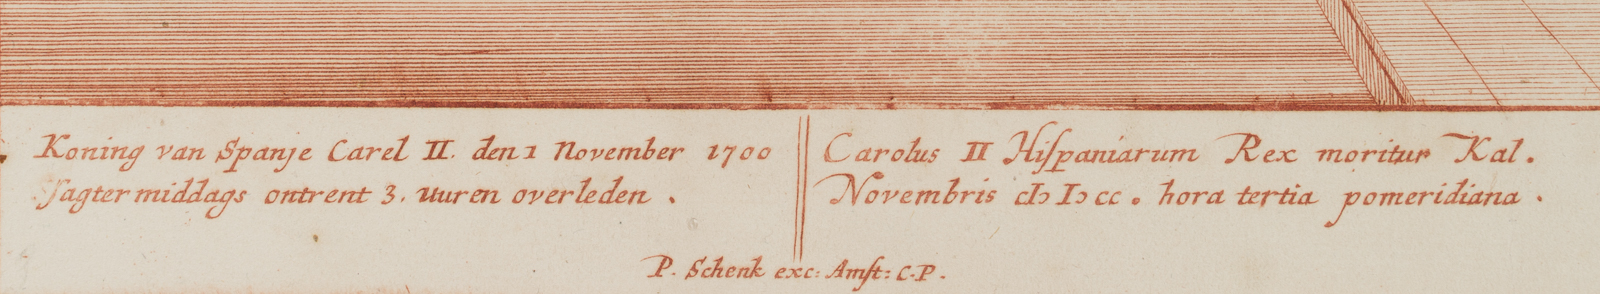 Koning van Spanje Carel II. den 1 November 1700
Sagtermiddags ontrent 3. uuren overleden .
Carolus II Hiſpaniarum Rex moritur Kal.
Novembris cIɔ Iɔ cc . hora tertia pomeridiana .
P. Schenk exc: Amſt: C.P.